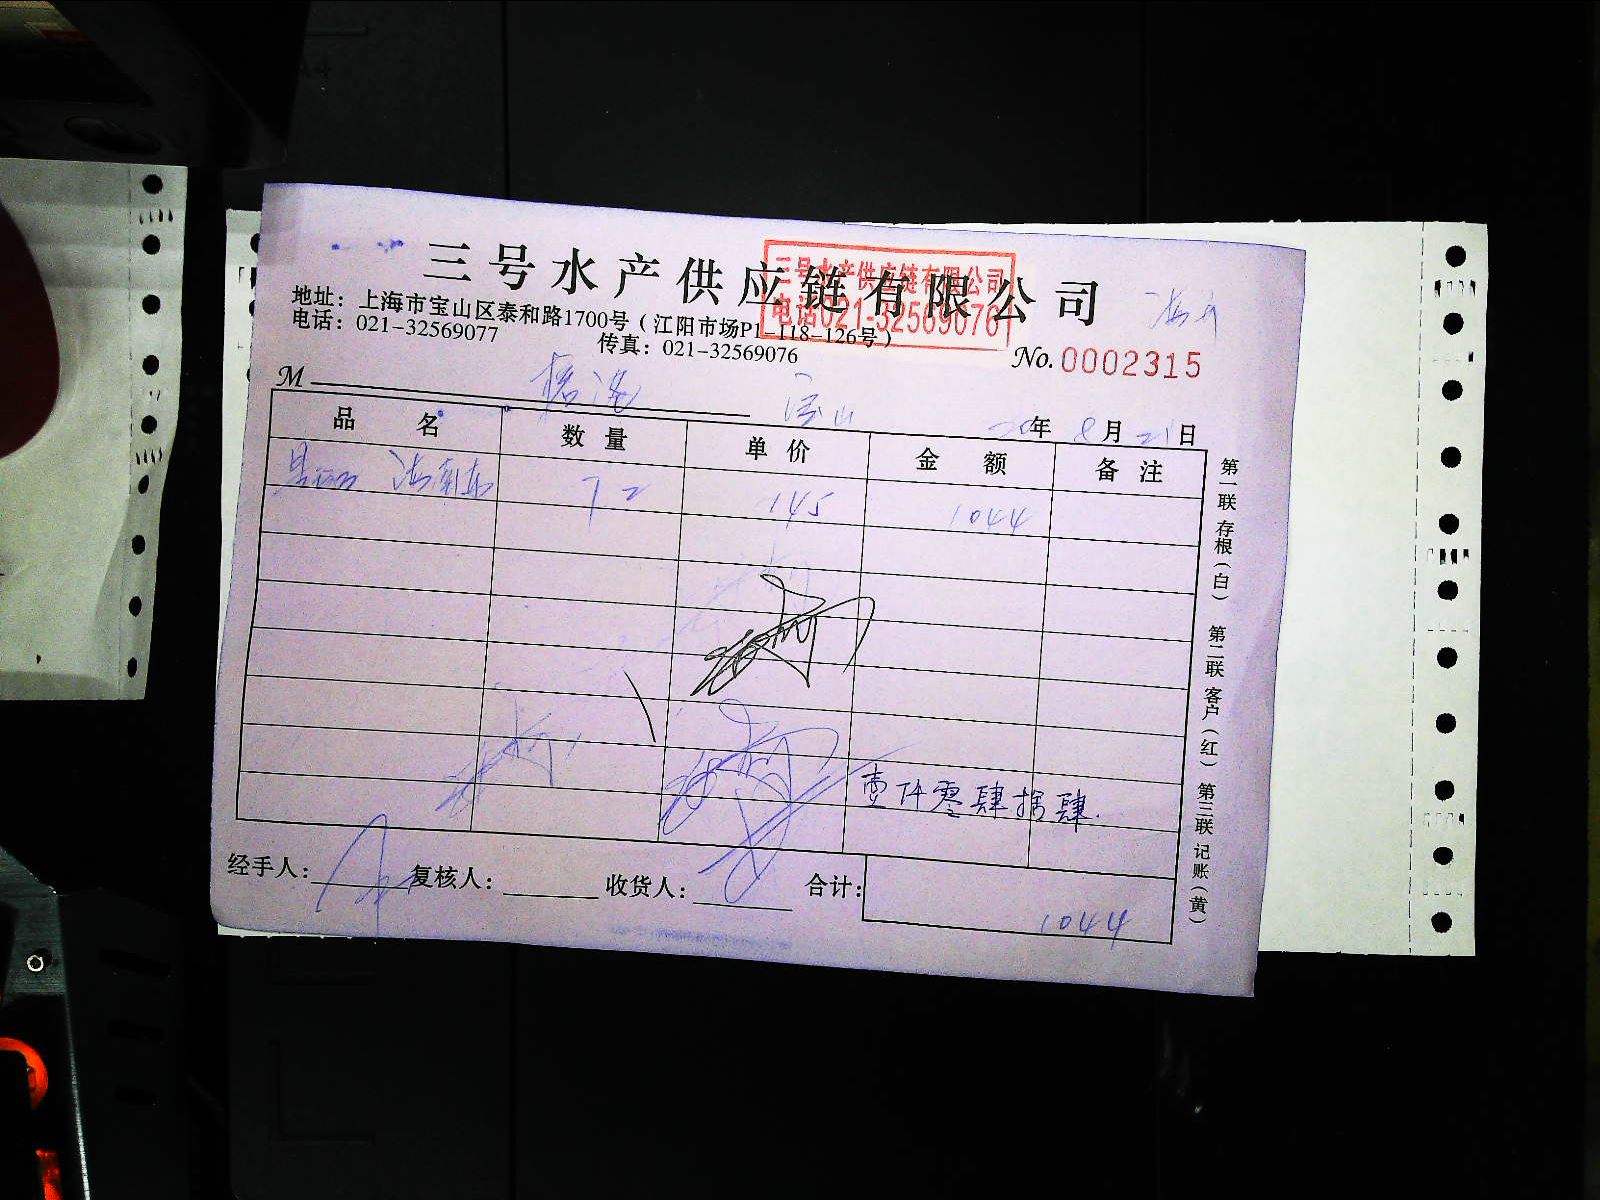 三号水产供应链有限公司
三号水产供应链有限公司
电话021-32569076
地址：上海市宝山区泰和路1700号（江阳市场P1-118-126号）
电话：021-32569077 传真：021-32569076
No.0002315
M 宝山
20年 8月 21日
品 名 数 量 单 价 金 额 备 注
72 145 1044
壹仟零肆拾肆
经手人： 复核人： 收货人： 合计： 1044
第一联 存根（白） 第二联 客户（红） 第三联 记账（黄）